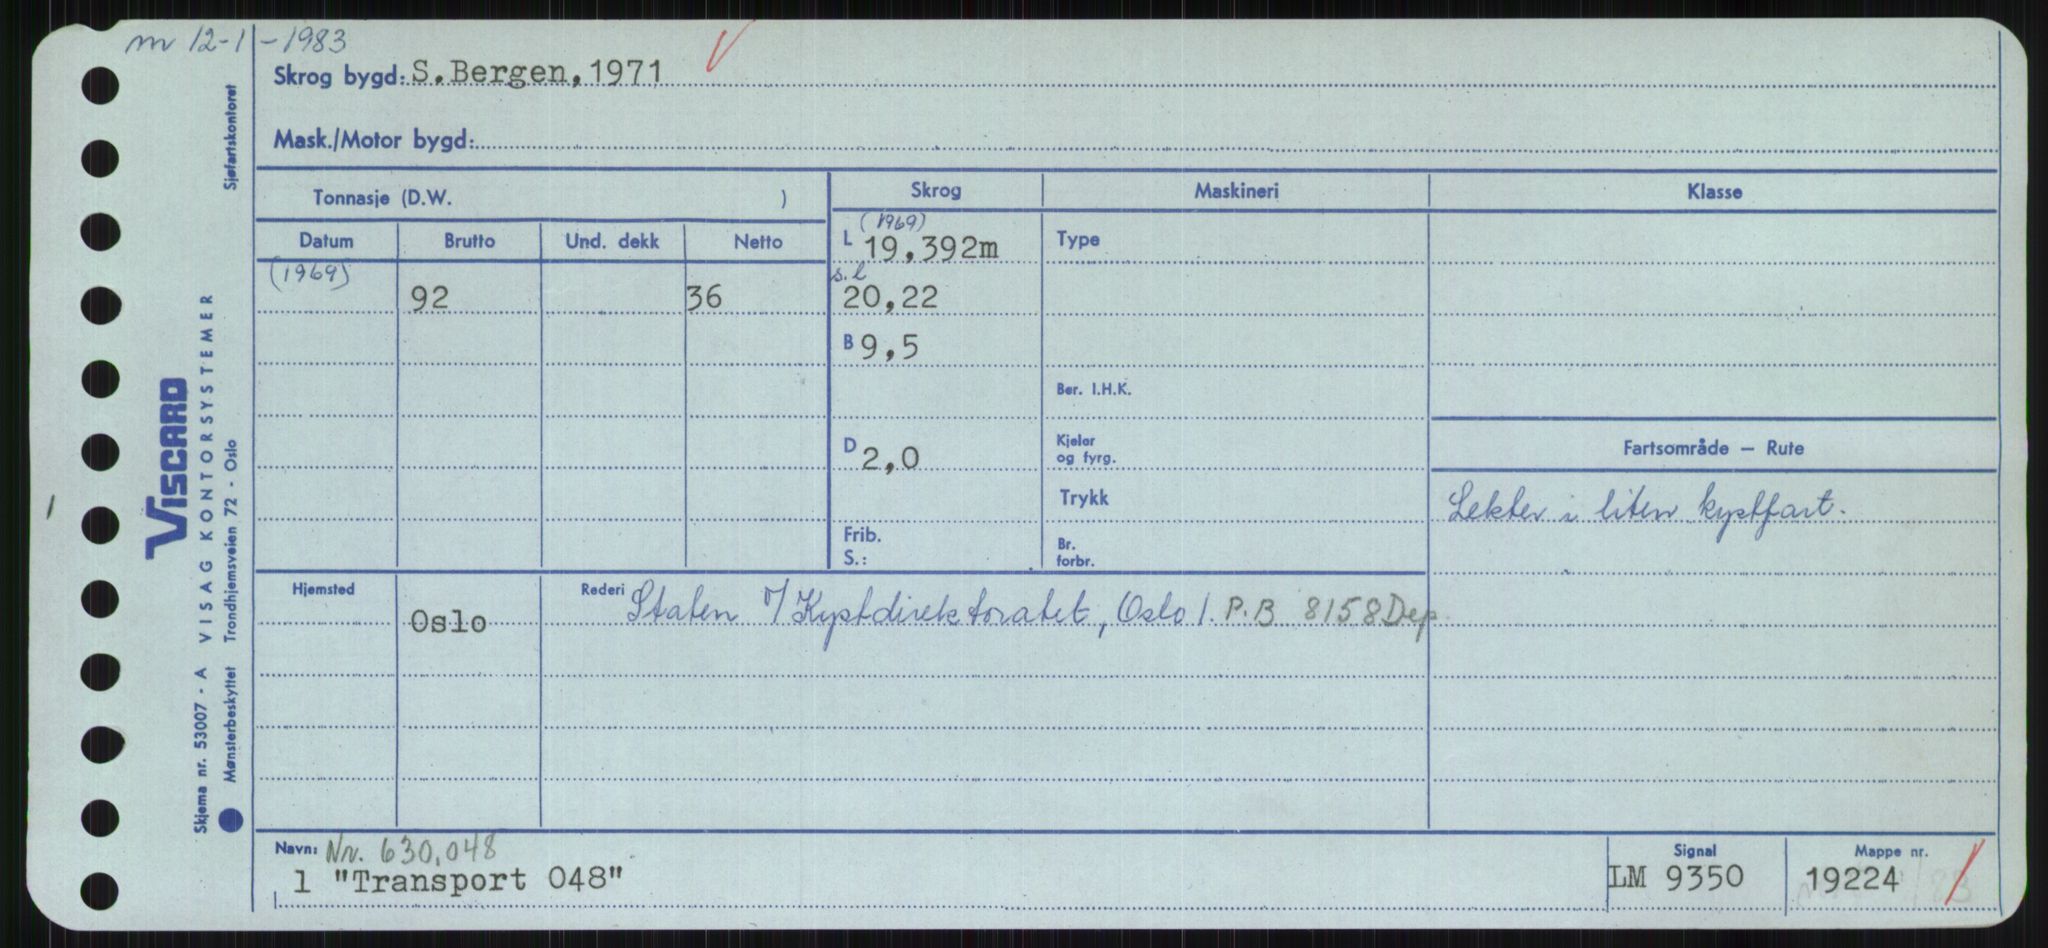 m 12-1-1983
Skrog bygd: S.Bergen, 1971
Mask./Motor bygd:
Tonnasje (D.W. )
Skrog Maskineri Klasse
Datum Brutto Und. dekk Netto
(1969)
L 19,392m Type
(1969)
92 36
s.l
20,22
B 9,5
Ber. I.H.K.
D 2,0
Kjeler
og fyrg.
Trykk
Frib.
S.:
Br.
forbr.
Fartsområde — Rute
Lekter i liten kystfart.
Hjemsted Rederi
Oslo Staten v/Kystdirektoratet, Oslo 1. P.B 8158 Dep.
Navn: Nr. 630,048
1 "Transport 048"
Signal
LM 9350
Mappe nr.
19224
Sjøfartskontoret
VISCARD
VISAG KONTORSYSTEMER
Skjema nr. 53007 - A
Mønsterbeskyttet Trondhjemsveien 72 - Oslo